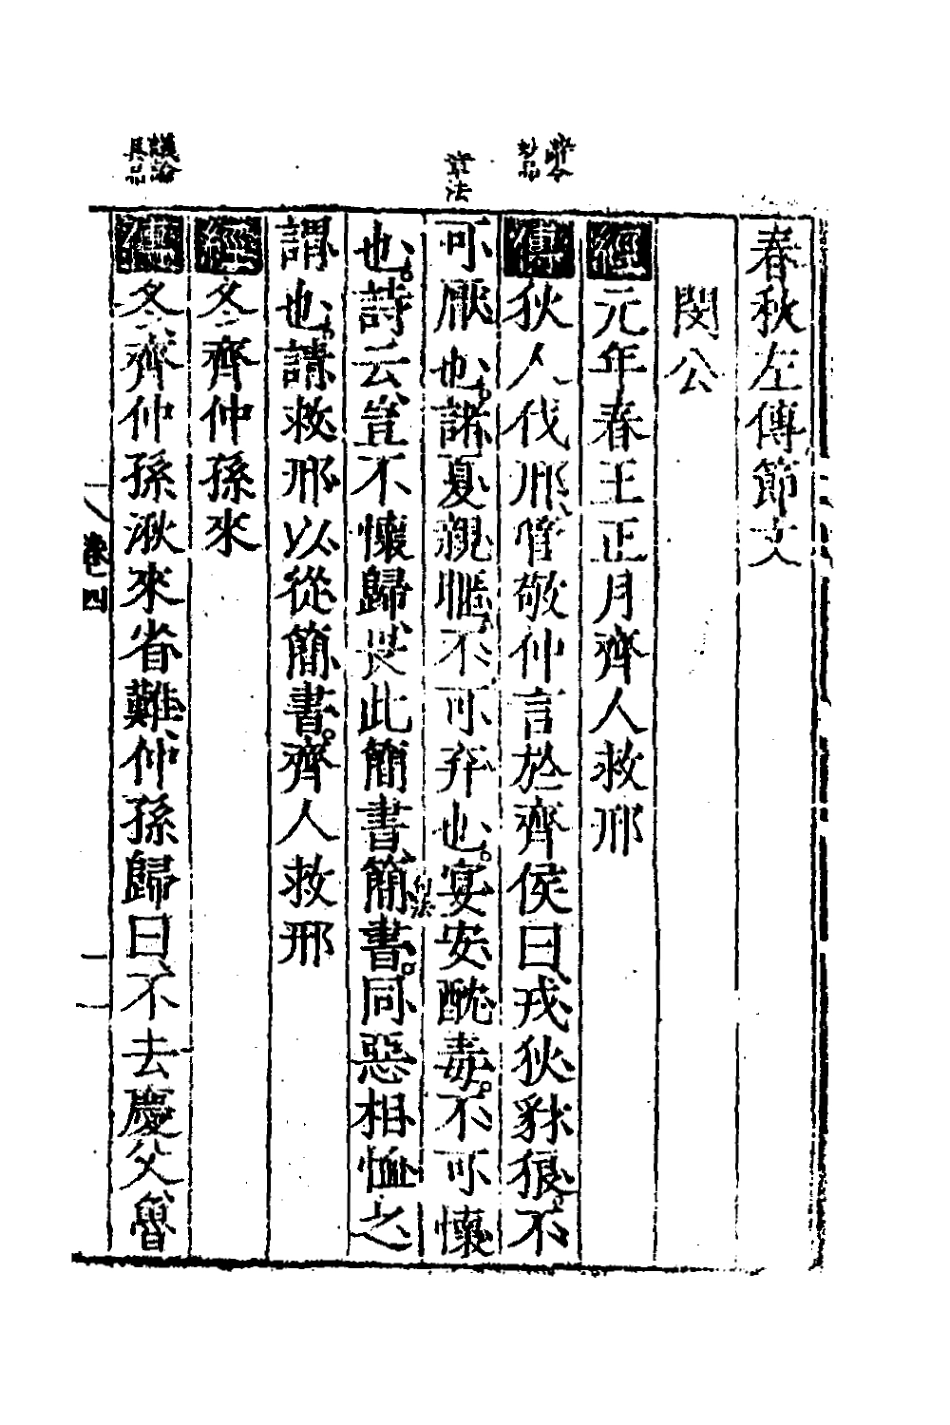 春秋左傳節文
閔公
經元年春王正月齊人救邢
辭令
妙品
傳狄人伐邢管敬仲言於齊侯曰戎狄豺狼不
章法
可厭也諸夏親暱不可弃也宴安酖毒不可懷
句法
也詩云豈不懷歸畏此簡書簡書同惡相恤之
謂也請救邢以從簡書齊人救邢
經冬齊仲孫來
議論
具品
傳冬齊仲孫湫來省難仲孫歸曰不去慶父魯
卷四
一